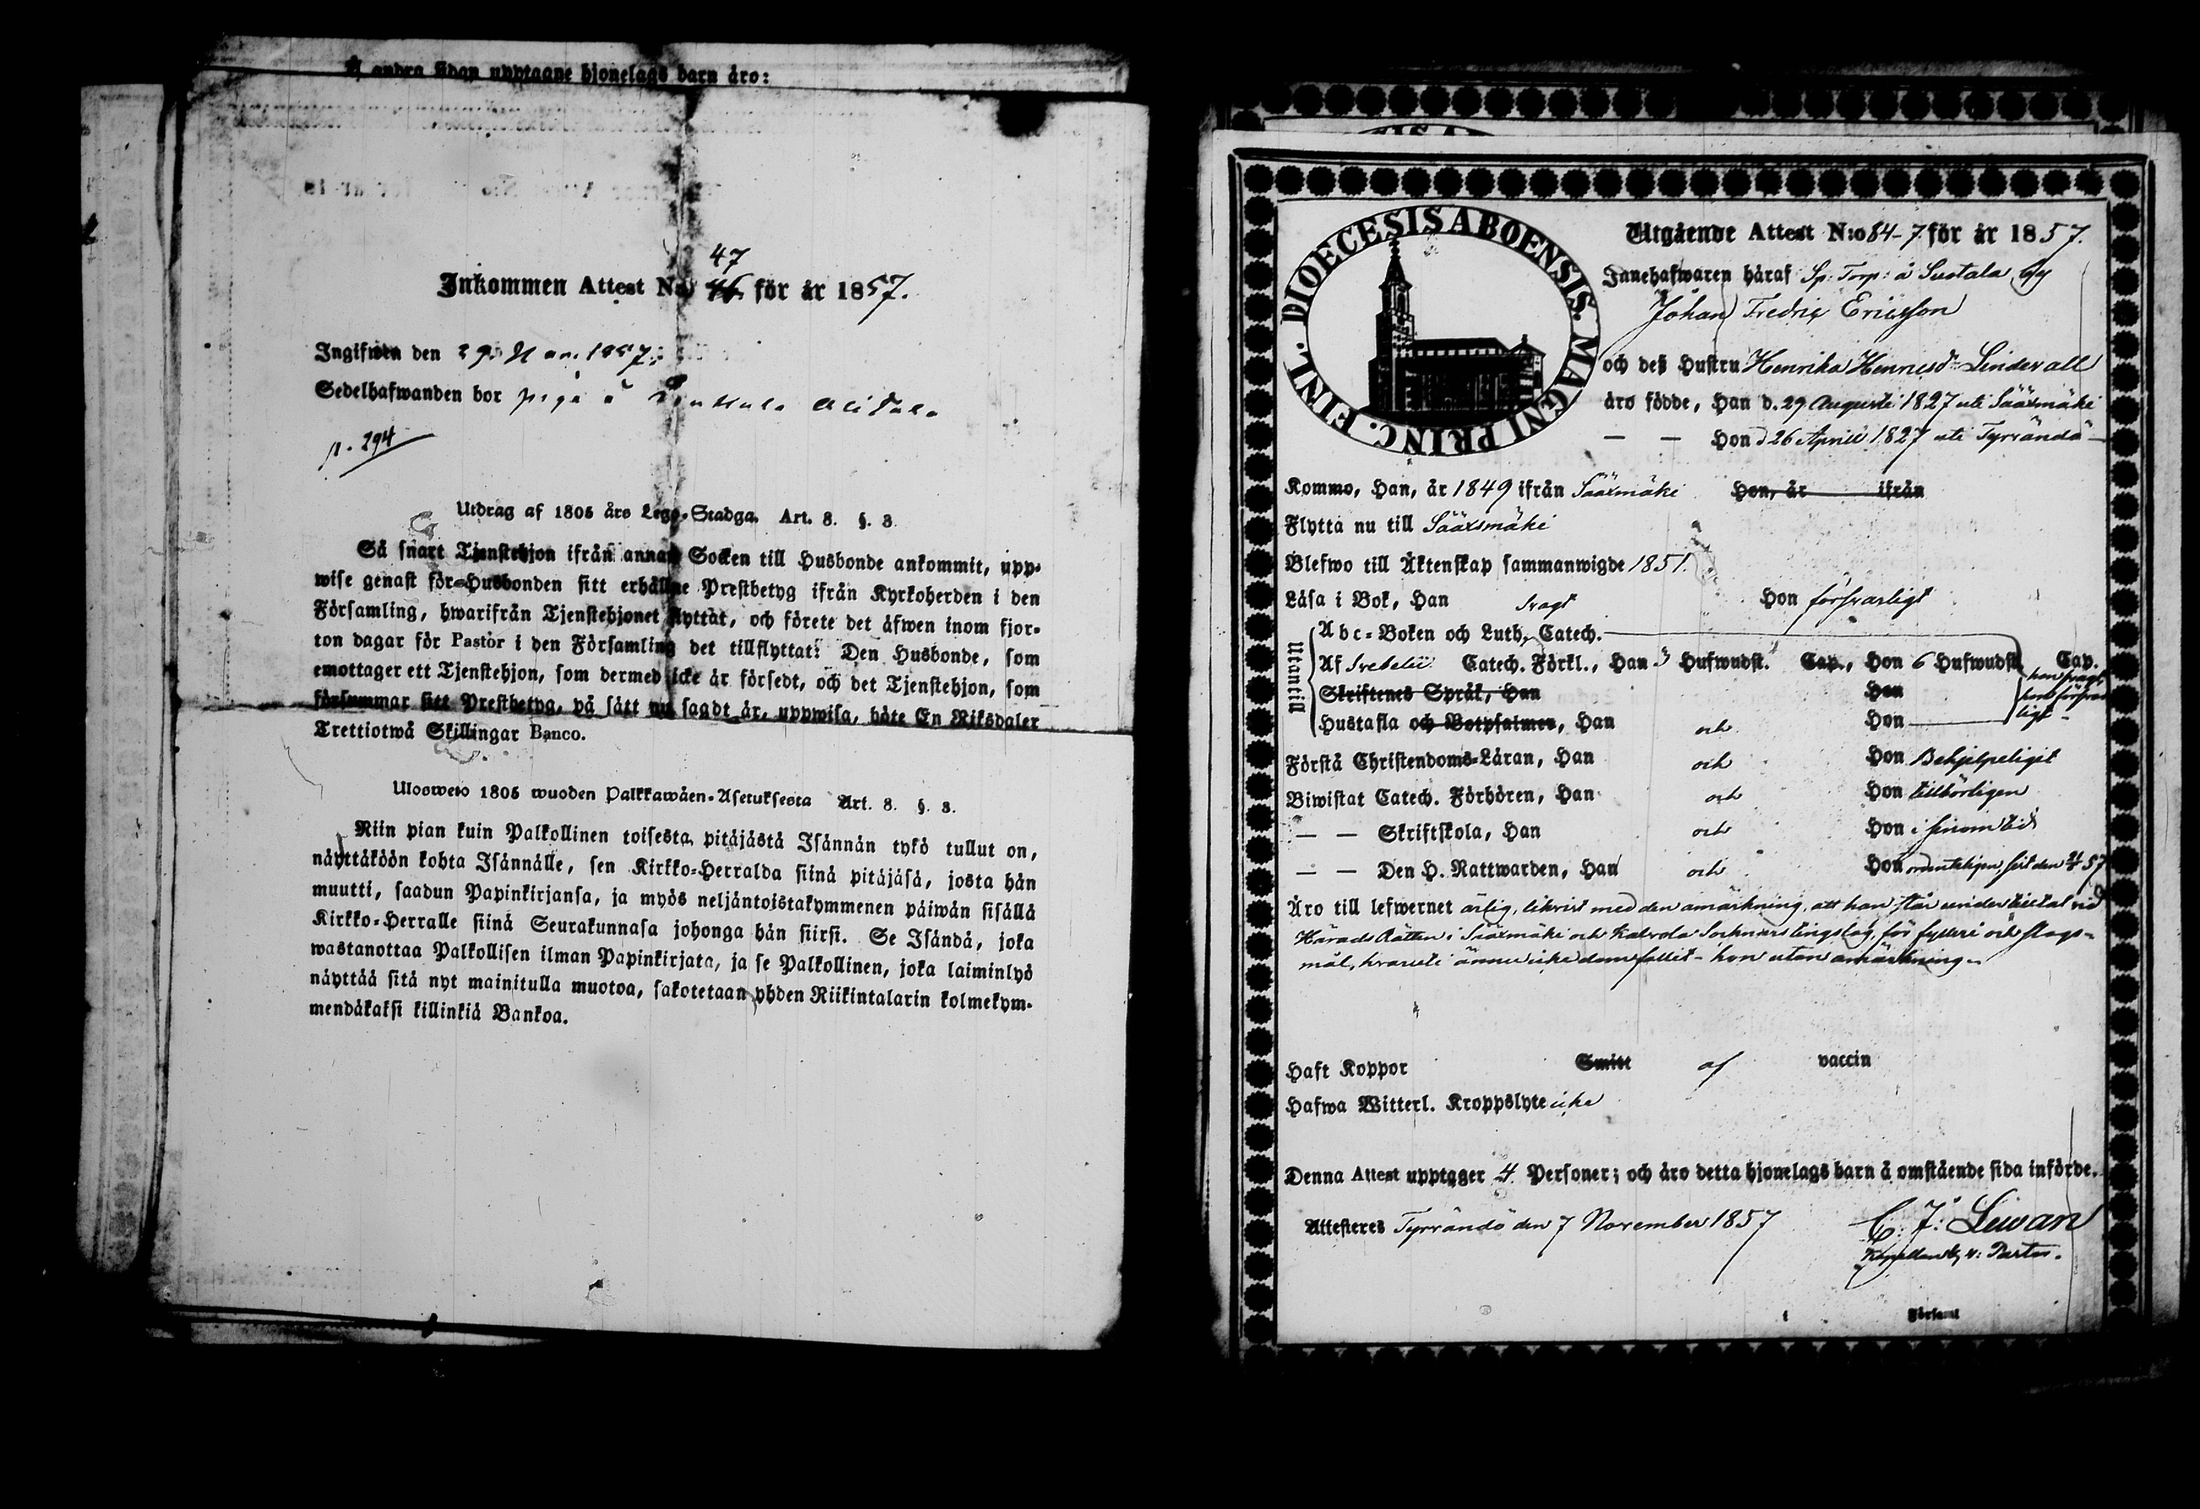 å andra sidan upptagne hjonelags barn äro:
47
Inkommen Attest No 46 för år 1857.
Ingifwen den 29 Nov. 1857.
Sedelhafwanden bor piga å
p. 294
Utdrag af 1805 års Lego-Stadga. Art. 8. §. 8.
Så snart Tjenstehjon ifrån annan Socken till Husbonde ankommit, upp-
wise genast för Husbonden sitt erhållne Prestbetyg ifrån Kyrkoherden i den
Församling, hwarifrån Tjenstehjonet flyttat, och förete det äfwen inom fjor-
ton dagar för Pastor i den Församling det tillflyttat: Den Husbonde, som
emottager ett Tjenstehjon, som dermed icke är försedt, och det Tjenstehjon, som
försummar sitt Prestbetyg, på sätt nu sagdt är, uppwisa, böte En Riksdaler
Trettiotwå Skillingar Banco.
Ulosweto 1805 wuoden Palkkawäen-Asetuksesta Art. 8. §. 8.
Niin pian kuin Palkollinen toisesta pitäjästä Isännän tykö tullut on,
näyttäköön kohta Isännälle, sen Kirkko-Herralda siinä pitäjäsä, josta hän
muutti, saadun Papinkirjansa, ja myös neljäntoistakymmenen päiwän sisällä
Kirkko-Herralle siinä Seurakunnasa johonga hän siirsi. Se Isändä, joka
wastanottaa Palkollisen ilman Papinkirjata, ja se Palkollinen, joka laiminlyö
näyttää sitä nyt mainitulla muotoa, sakotetaan yhden Riikintalarin kolmekym-
mendäkaksi killinkiä Bankoa.
DIOECESIS ABOENSIS. MAGNI PRINC. FINL.
Utgående Attest N:o 84-7 för år 1857.
Innehafwaren häraf Sp: Torp: å Suotala by
Johan Fredric Ericsson
och deß Hustru Henrika Henricsdr Lindevall
äro födde, Han d. 29 Augusti 1827 uti Sääxmäki
— — Hon d 26 April 1827 uti Tyrvändö
Kommo, Han, år 1849 ifrån Sääxmäki Hon, år ifrån
Flytta nu till Sääxmäki
Blefwo till Äktenskap sammanwigde 1851.
Läsa i Bok, Han svagt Hon försvarligt
Utantill
Abc-Boken och Luth. Catech.
Af Svebelii Catech. Förkl., Han 3 Hufwudst. Cap., Hon 6 Hufwudst. Cap.
han svagt
hon försvar
ligt
Skriftenes Språk, Han Hon
Hustafla och Botpsalmen, Han och Hon
Förstå Christendoms-Läran, Han och Hon Behjelpeligit
Biwistat Catech. Förhören, Han och Hon tillbörligen
— — Skriftskola, Han och Hon i sinom tid
— — Den H. Nattwarden, Han och Hon ordenteligen, sist den
Äro till lefwernet ärlig, likvist med den anmärkning, att han står under tilltal vid
Härads Rätten i Sääxmäki och Kalvola Socknars tingslag, för fylleri och slags-
mål, hvaruti ännu icke dom fallit - hon utan anmärkning.
Haft Koppor Smitt af vaccin
Hafwa Witterl. Kroppslyte icke
Denna Attest upptager 4 Personer; och äro detta hjonelags barn å omstående sida införde.
Attesteres Tyrvändö den 7 November 1857
C: J: Lewan
Kapellan
Församl